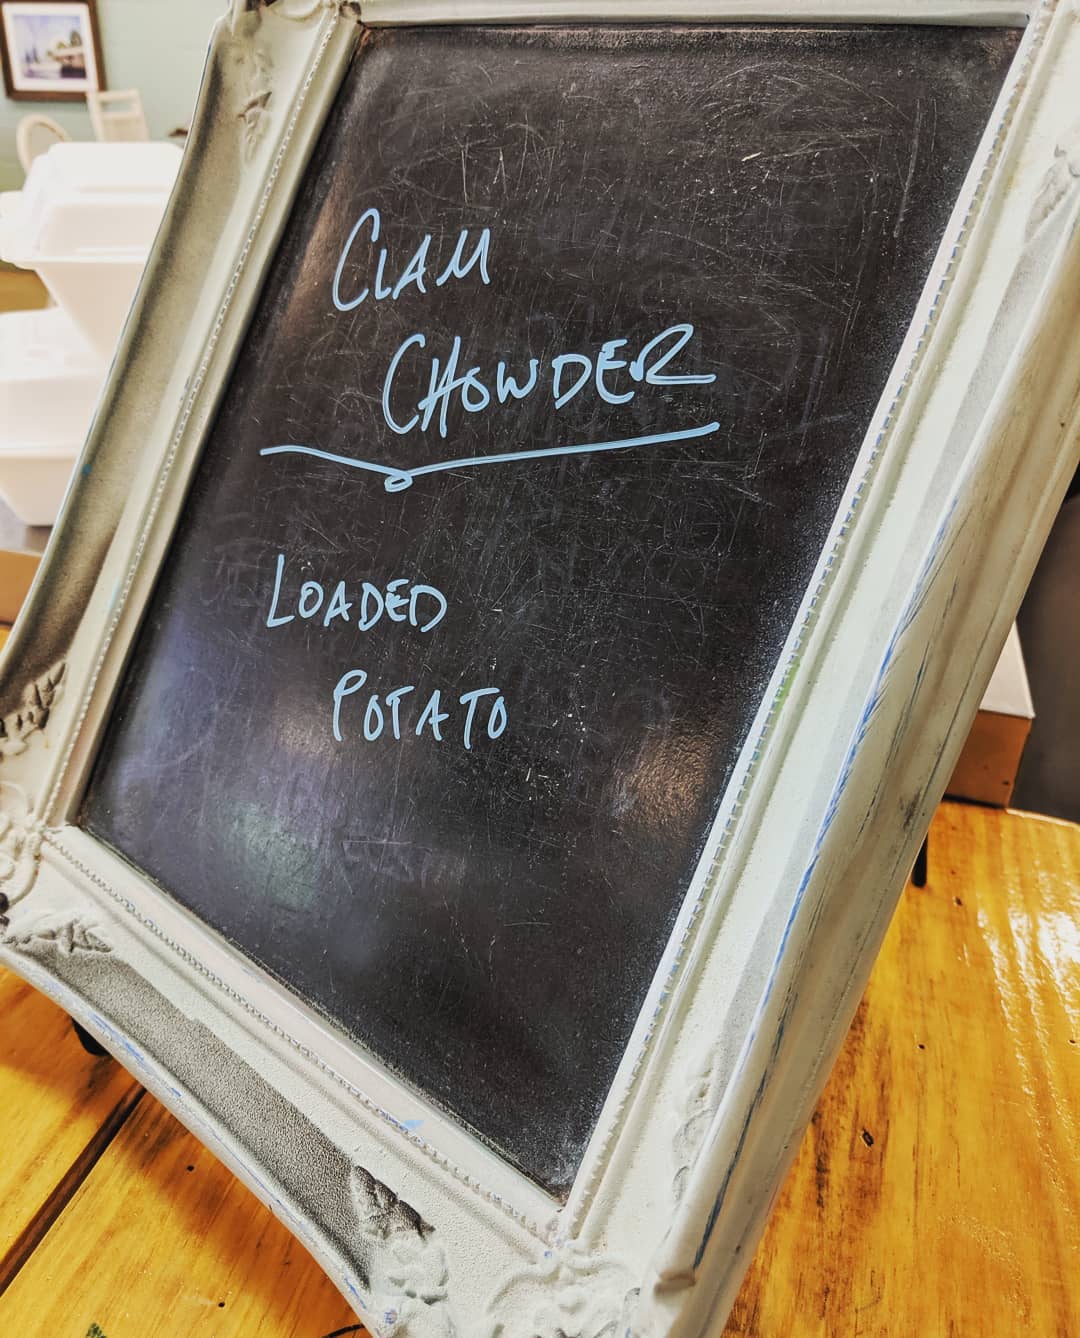 CLAM
CHOWDER
LOADED
POTATO